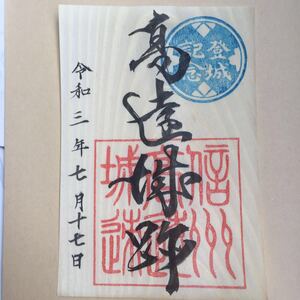 登城
記念
高遠城跡
信州
高遠
城跡
令和三年七月十七日